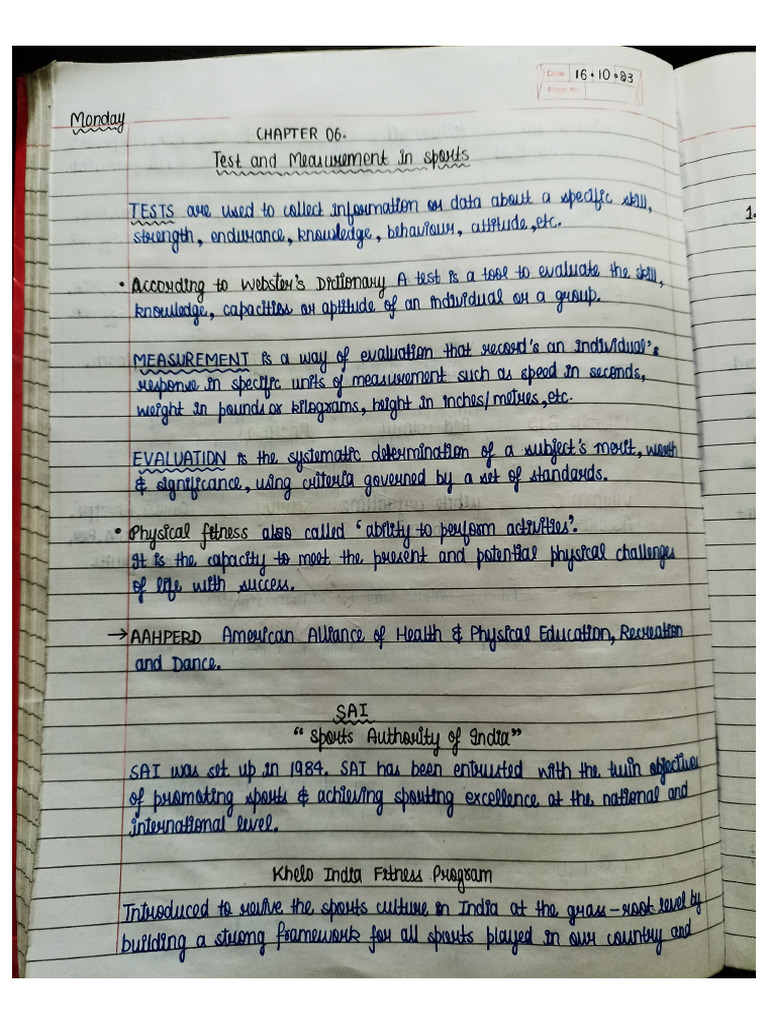 Date 16.10.23
Page No.
Monday
CHAPTER 06.
Test and Measurement in sports
TESTS are used to collect information or data about a specific skill,
strength, endurance, knowledge, behaviour, attitude, etc.
• According to Webster's Dictionary A test is a tool to evaluate the skill,
knowledge, capacities or aptitude of an individual or a group.
MEASUREMENT is a way of evaluation that record's an individual's
response in specific units of measurement such as speed in seconds,
weight in pounds or kilograms, height in inches/metres, etc.
EVALUATION is the systematic determination of a subject's merit, worth
& significance, using criteria governed by a set of standards.
• Physical fitness also called 'ability to perform activities'.
It is the capacity to meet the present and potential physical challenges
of life with success.
→ AAHPERD American Alliance of Health & Physical Education, Recreation
and Dance.
SAI
"Sports Authority of India"
SAI was set up in 1984. SAI has been entrusted with the twin objectives
of promoting sports & achieving sporting excellence at the national and
international level.
Khelo India Fitness Program
Introduced to revive the sports culture in India at the grass-root level by
building a strong framework for all sports played in our country and
1.